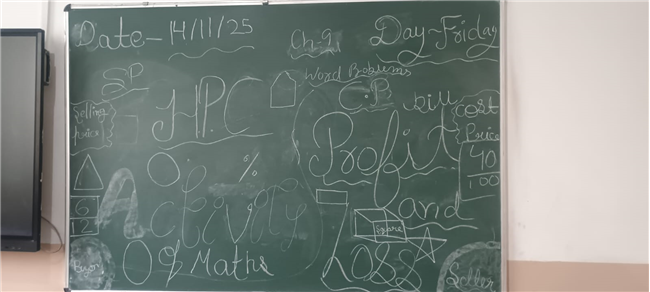 Date - 14/11/25
Ch-9
Day-Friday
Word Problems
SP
H.P.C
C.P
Bill
Selling
price
cost
Price
40
100
Profit
and
Loss
%
Activity
Of Maths
6
12
Square
Buyer
Seller